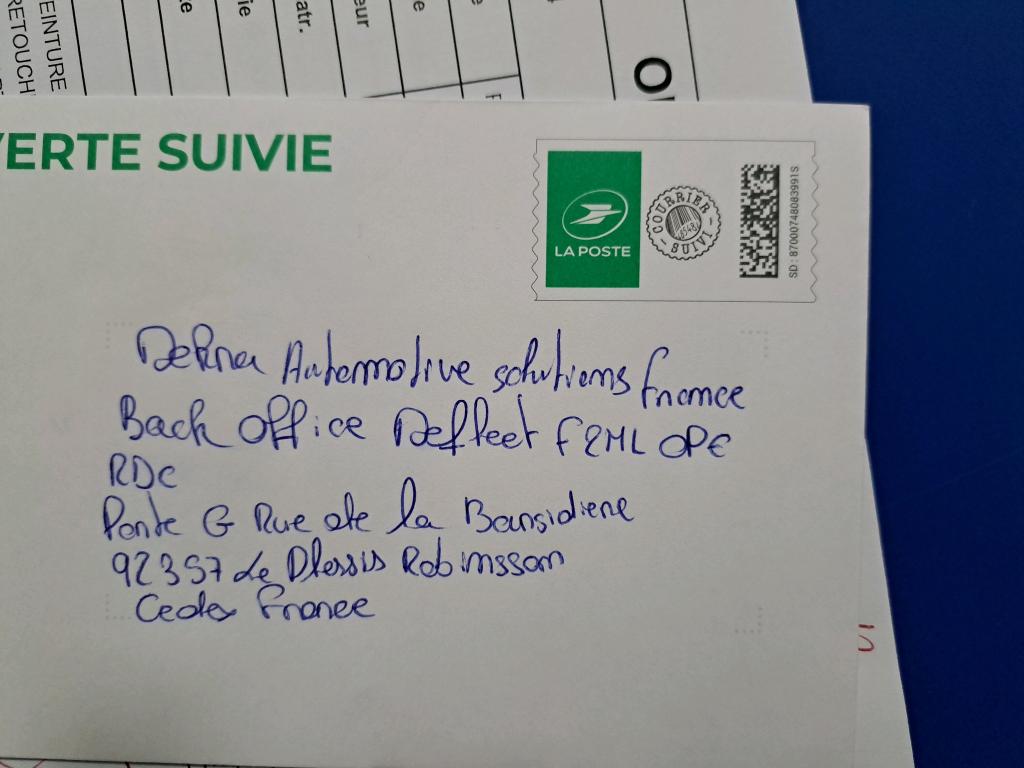 EINTURE
RETOUCH
te
ie
atr.
eur
e
e
VERTE SUIVIE
LA POSTE
COURRIER
SUIVI
SD : 87000748083991S
Automotive solutions france
Back office Defleet F2ML OPE
RDC
Porte G Rue de la
92357 Le Plessis Robinsson
Cedex France